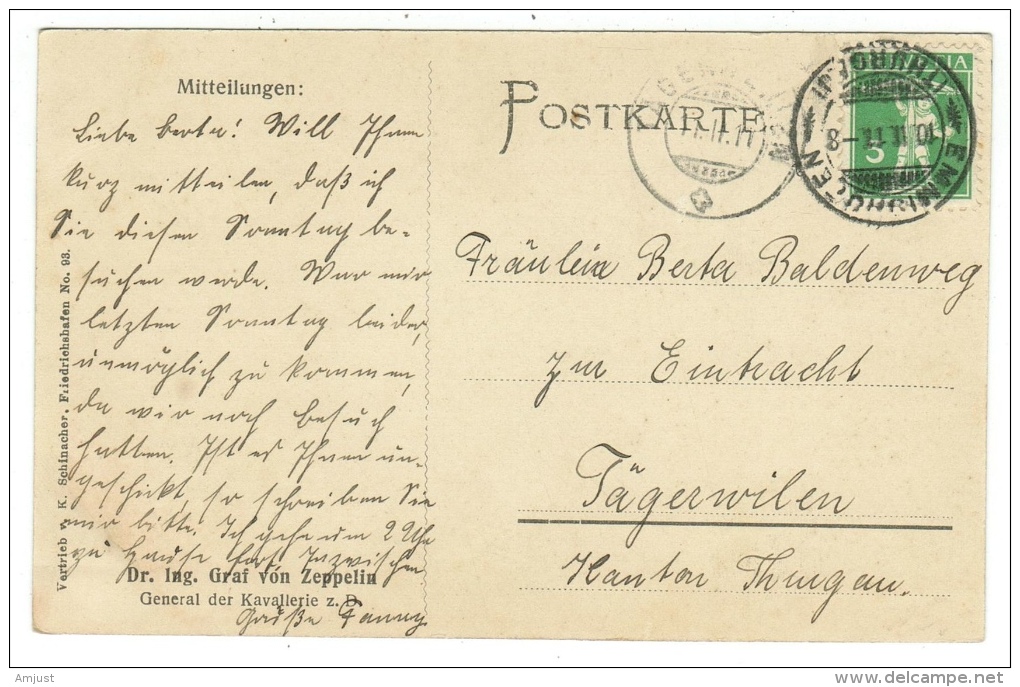 Mitteilungen:
Liebe Berta! Will Ihnen
kurz mitteilen, daß ich
Sie diesen Sonntag be-
suchen werde. War mir
letzten Sonntag leider
unmöglich zu kommen,
da wir noch Besuch
hatten. Ist es Ihnen un-
geschickt, so schreiben Sie
mir bitte. Ich gehe um 2 Uhr
zu Hause fort. Inzwischen
Grüße Fanny.
Dr. Ing. Graf von Zeppelin
General der Kavallerie z. D.
Vertrieb v. K. Schinacher, Friedrichshafen No. 93.
POSTKARTE
EMMISHOFEN
(THURGAU)
10. II. 11.-8
II. 11
5
Fräulein Berta Baldenweg
zur Eintracht
Tägerwilen
Kanton Thurgau.
Amjust
http://www.delcampe.net